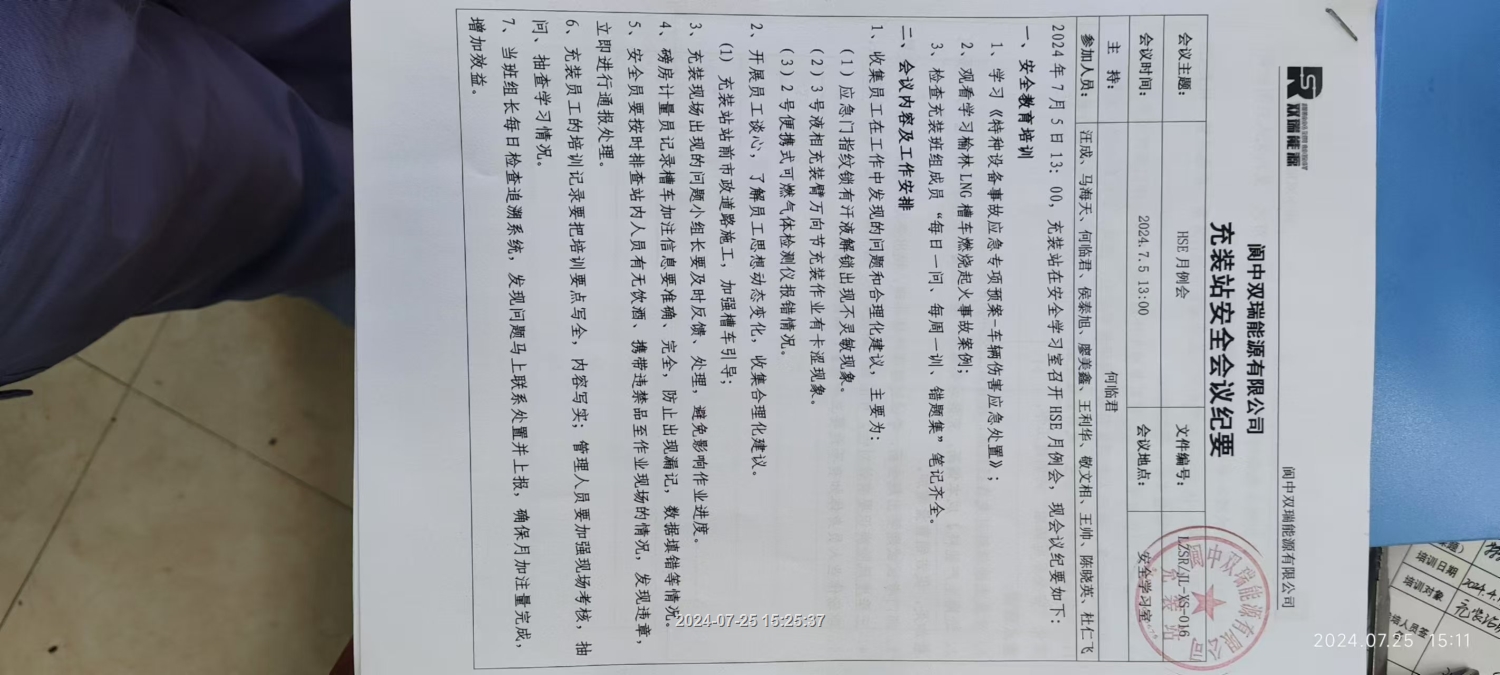 双瑞能源
阆中双瑞能源有限公司
阆中双瑞能源有限公司
充装站安全会议纪要
会议主题： HSE 月例会 文件编号： LZSR/JL-XS-016
会议时间： 2024.7.5 13:00 会议地点： 安全学习室
主 持： 何临君
参加人员： 汪成、马海天、何临君、侯泰旭、廖美鑫、王利华、敬文相、王帅、陈晓英、杜仁飞
2024 年 7 月 5 日 13：00，充装站在安全学习室召开 HSE 月例会，现会议纪要如下：
一、安全教育培训
1、学习《特种设备事故应急专项预案-车辆伤害应急处置》；
2、观看学习榆林 LNG 槽车燃烧起火事故案例；
3、检查充装班组成员“每日一问、每周一训、错题集”笔记齐全。
二、会议内容及工作安排
1、收集员工在工作中发现的问题和合理化建议，主要为：
（1）应急门指纹锁有汗液解锁出现不灵敏现象。
（2）3 号液相充装臂万向节充装作业有卡涩现象。
（3）2 号便携式可燃气体检测仪报错情况。
2、开展员工谈心，了解员工思想动态变化，收集合理化建议。
（1）充装站站前市政道路施工，加强槽车引导；
3、充装现场出现的问题小组长要及时反馈、处理，避免影响作业进度。
4、磅房计量员记录槽车加注信息要准确、完全，防止出现漏记，数据填错等情况。
5、安全员要按时排查站内人员有无饮酒、携带违禁品至作业现场的情况，发现违章，
立即进行通报处理。
6、充装员工的培训记录要把培训要点写全，内容写实；管理人员要加强现场考核，抽
问、抽查学习情况。
7、当班组长每日检查追溯系统，发现问题马上联系处置并上报，确保月加注量完成，
增加效益。
阆中双瑞能源有限公司
充装站
培训日期
培训对象
2024-07-25 15:25:37
2024.07.25 15:11